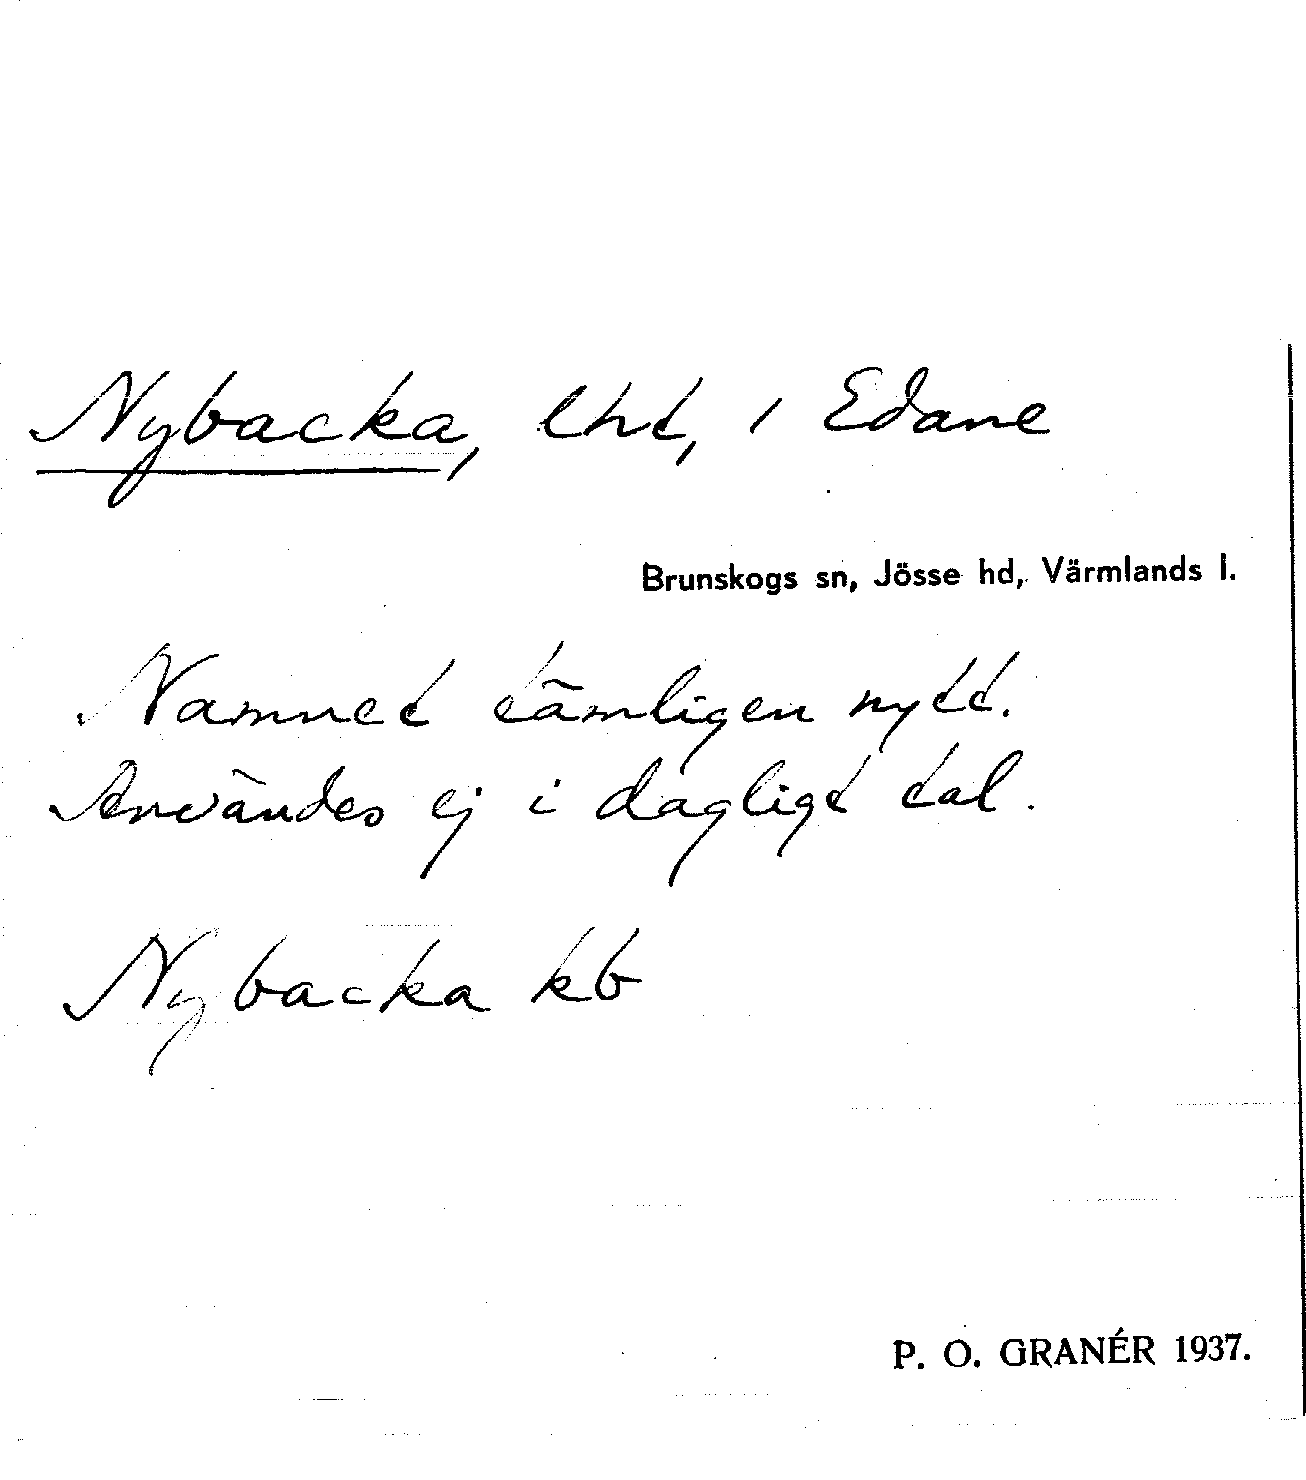 Nybacka, lht, i Edane
Brunskogs sn, Jösse hd, Värmlands l.
Namnet tämligen nytt.
Användes ej i dagligt tal.
Nybacka kb
P. O. GRANÉR 1937.